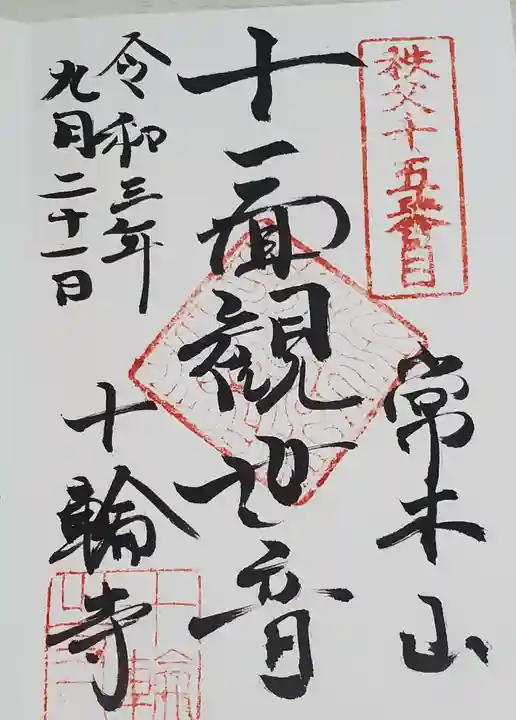 秩父十五番目
常木山
十一面観世音
令和三年
九月二十一日
十輪寺